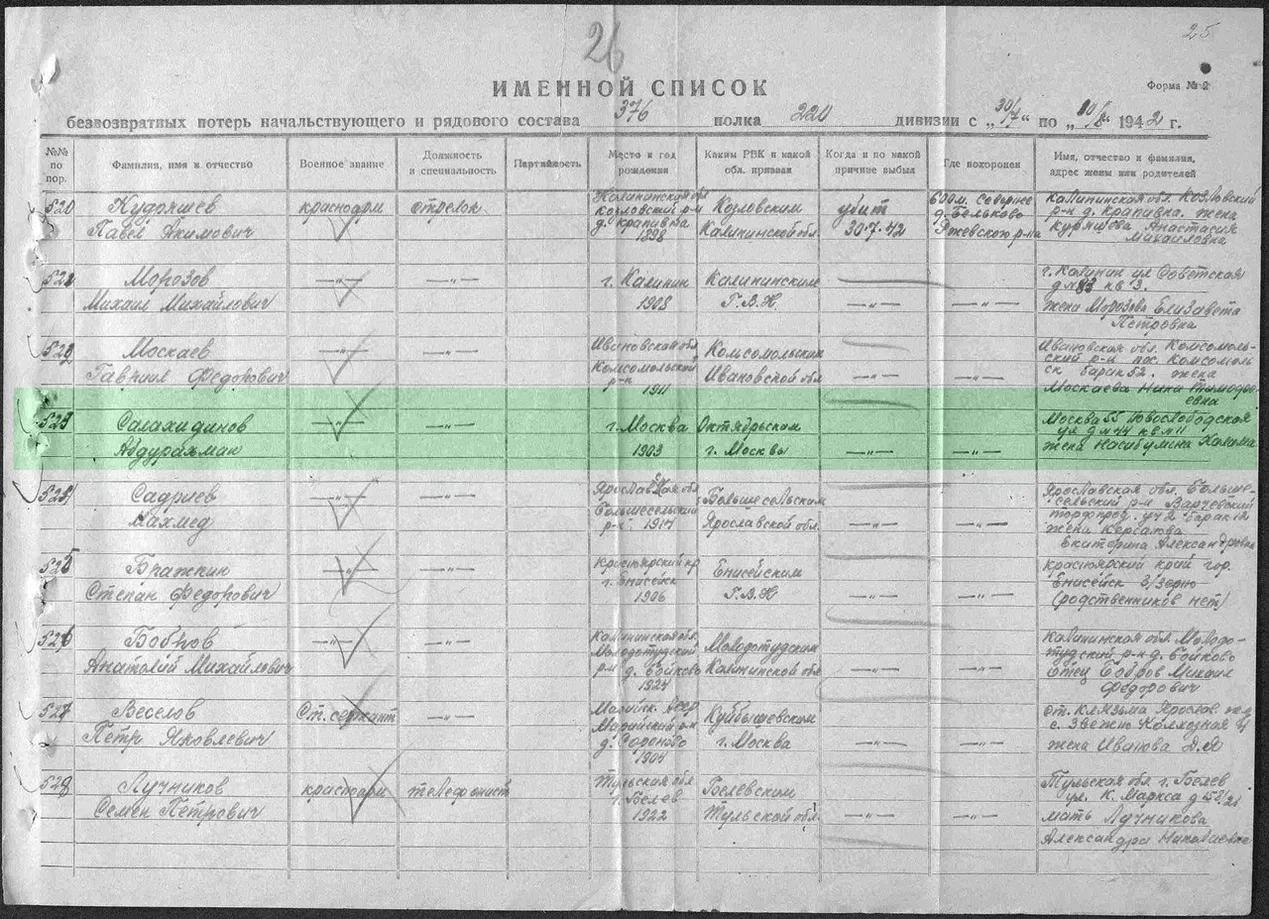 26
25
ИМЕННОЙ СПИСОК
Форма № 2
безвозвратных потерь начальствующего и рядового состава 376 полка 220 дивизии с „30/7" по „10/8" 1942 г.
№№ по пор.
Фамилия, имя и отчество
Военное звание
Должность и специальность
Партийность
Место и год рождения
Каким РВК и какой обл. призван
Когда и по какой причине выбыл
Где похоронен
Имя, отчество и фамилия, адрес жены или родителей
520 Кудряшев красноарм стрелок Калининская обл Козловским убит 600 м. Севернее Калининская обл. Козловский
Павел Якимович козловский р-н д. Крапивка 1898 Калининской обл. 30.7.42 д. Бельково Ржевского р-на р-н д. Крапивка. жена Анастасия Михайловна
Морозов —"— —"— г. Калинин Калининским г. Калинин ул Советская
Михаил Михайлович 1908 Г.В.К. —"— —"— кв 13. жена Морозова Елизавета Петровна
Москаев —"— —"— Ивановская обл Комсомольским Ивановская обл. Комсомоль-
Гавриил Федорович Комсомольский р-н 1911 Ивановской обл —"— —"— ский р-н пос. Комсомольск барак 52. жена Москаева Нина Тимофеевна
523 Салахидинов —"— —"— г. Москва Октябрьским Москва 55 Новослободская
Абдурахман 1903 г. Москвы —"— —"— ул д № 44 кв № 11 жена Насибулина Халима
Садриев —"— —"— Ярославская обл Большесельским Ярославская обл. Больше-
Махмед Большесельский р-н 1917 Ярославской обл. —"— —"— сельский р-н Варчевский торфпред. уч 2 барак 12 жена Екатерина Александровна
525 —"— —"— Красноярский кр Енисейским Красноярский край гор.
Степан Федорович г. Енисейск 1906 Г.В.К —"— —"— Енисейск (родственников нет)
526 Бобров —"— —"— Калининская обл. Молодотудским Калининская обл Молодо-
Анатолий Михайлович Молодотудский р-н д. Бойково 1924 Калининской обл —"— —"— тудский р-н д. Бойково отец Бобров Михаил Федорович
527 Веселов Ст. сержант —"— Марийск. Асср Куйбышевским ст. Клязьма Ярослав.
Петр Яковлевич Марийский р-н 1904 г. Москва —"— —"— Колхозная жена Иванова
528 Лучников красноарм телефонист Тульская обл Белевским Тульская обл г. Белев
Семен Петрович г. Белев 1922 Тульской обл. —"— —"— ул. К. Маркса мать Лучникова Александра Николаевна